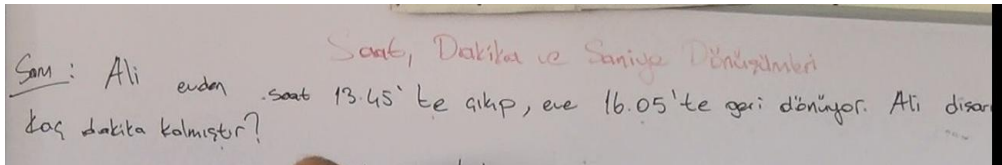 Saat, Dakika ve Saniye Dönüşümleri
Soru: Ali evden saat 13.45'te çıkıp, eve 16.05'te geri dönüyor. Ali dışar
kaç dakika kalmıştır?